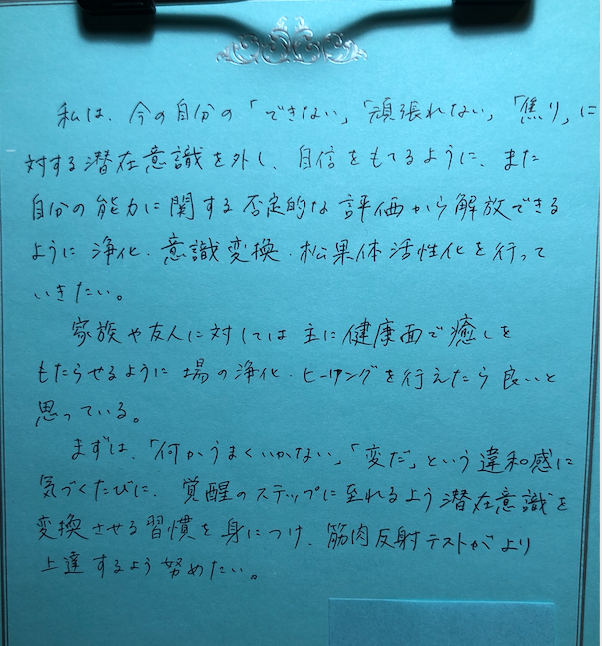 私は、今の自分の「できない」「頑張れない」「焦り」に
対する潜在意識を外し、自信をもてるように、また
自分の能力に関する否定的な評価から解放できる
ように浄化・意識変換・松果体活性化を行って
いきたい。
家族や友人に対しては主に健康面で癒しを
もたらせるように場の浄化・ヒーリングを行えたら良いと
思っている。
まずは、「何かうまくいかない」「変だ」という違和感に
気づくたびに、覚醒のステップに至れるよう潜在意識を
変換させる習慣を身につけ、筋肉反射テストがより
上達するよう努めたい。